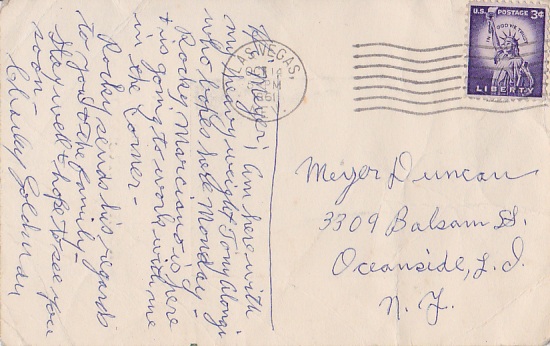 Hi Meyer! Am here with
my heavyweight Tony Alongi
who boxes here Monday -
Rocky Marciano is here
& is going to work with me
in the corner -
Rocky sends his regards
to you & the family -
Stay well & hope to see you
soon -
Charley Goldman
LAS VEGAS,
U.S. POSTAGE 3¢
IN GOD WE TRUST
LIBERTY
Meyer Duncan
3309 Balsam St.
Oceanside, L.I.
N.Y.